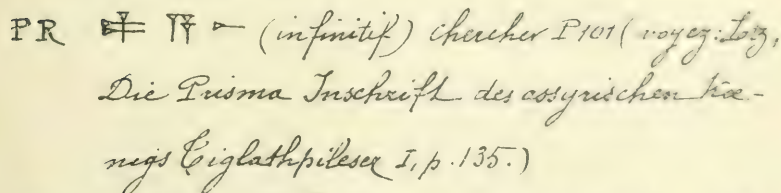 PR (infinitif) chercher P 101 (voyez: Lotz,
Die Prisma Inschrift des assyrischen Kœ-
nigs Tiglathpileser I, p. 135.)